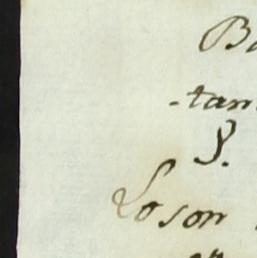 Ba
-tan
8.
Loson